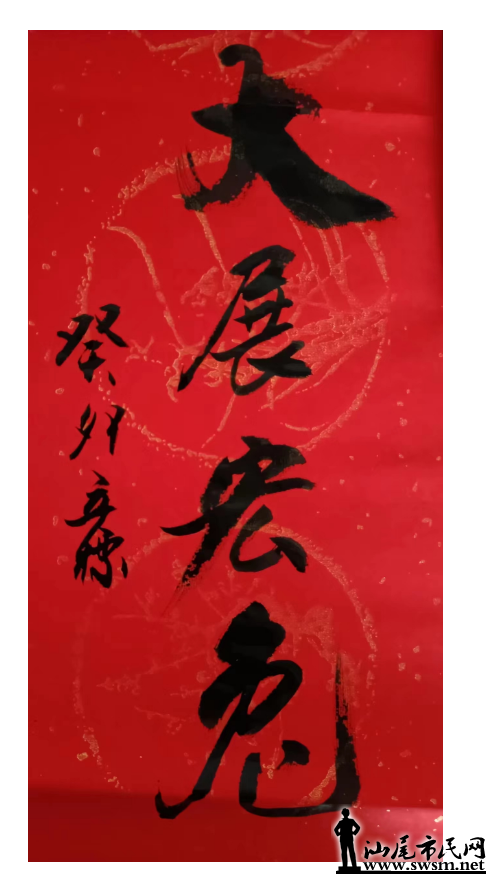 大展宏兔
癸卯
汕尾市民网
www.swsm.net